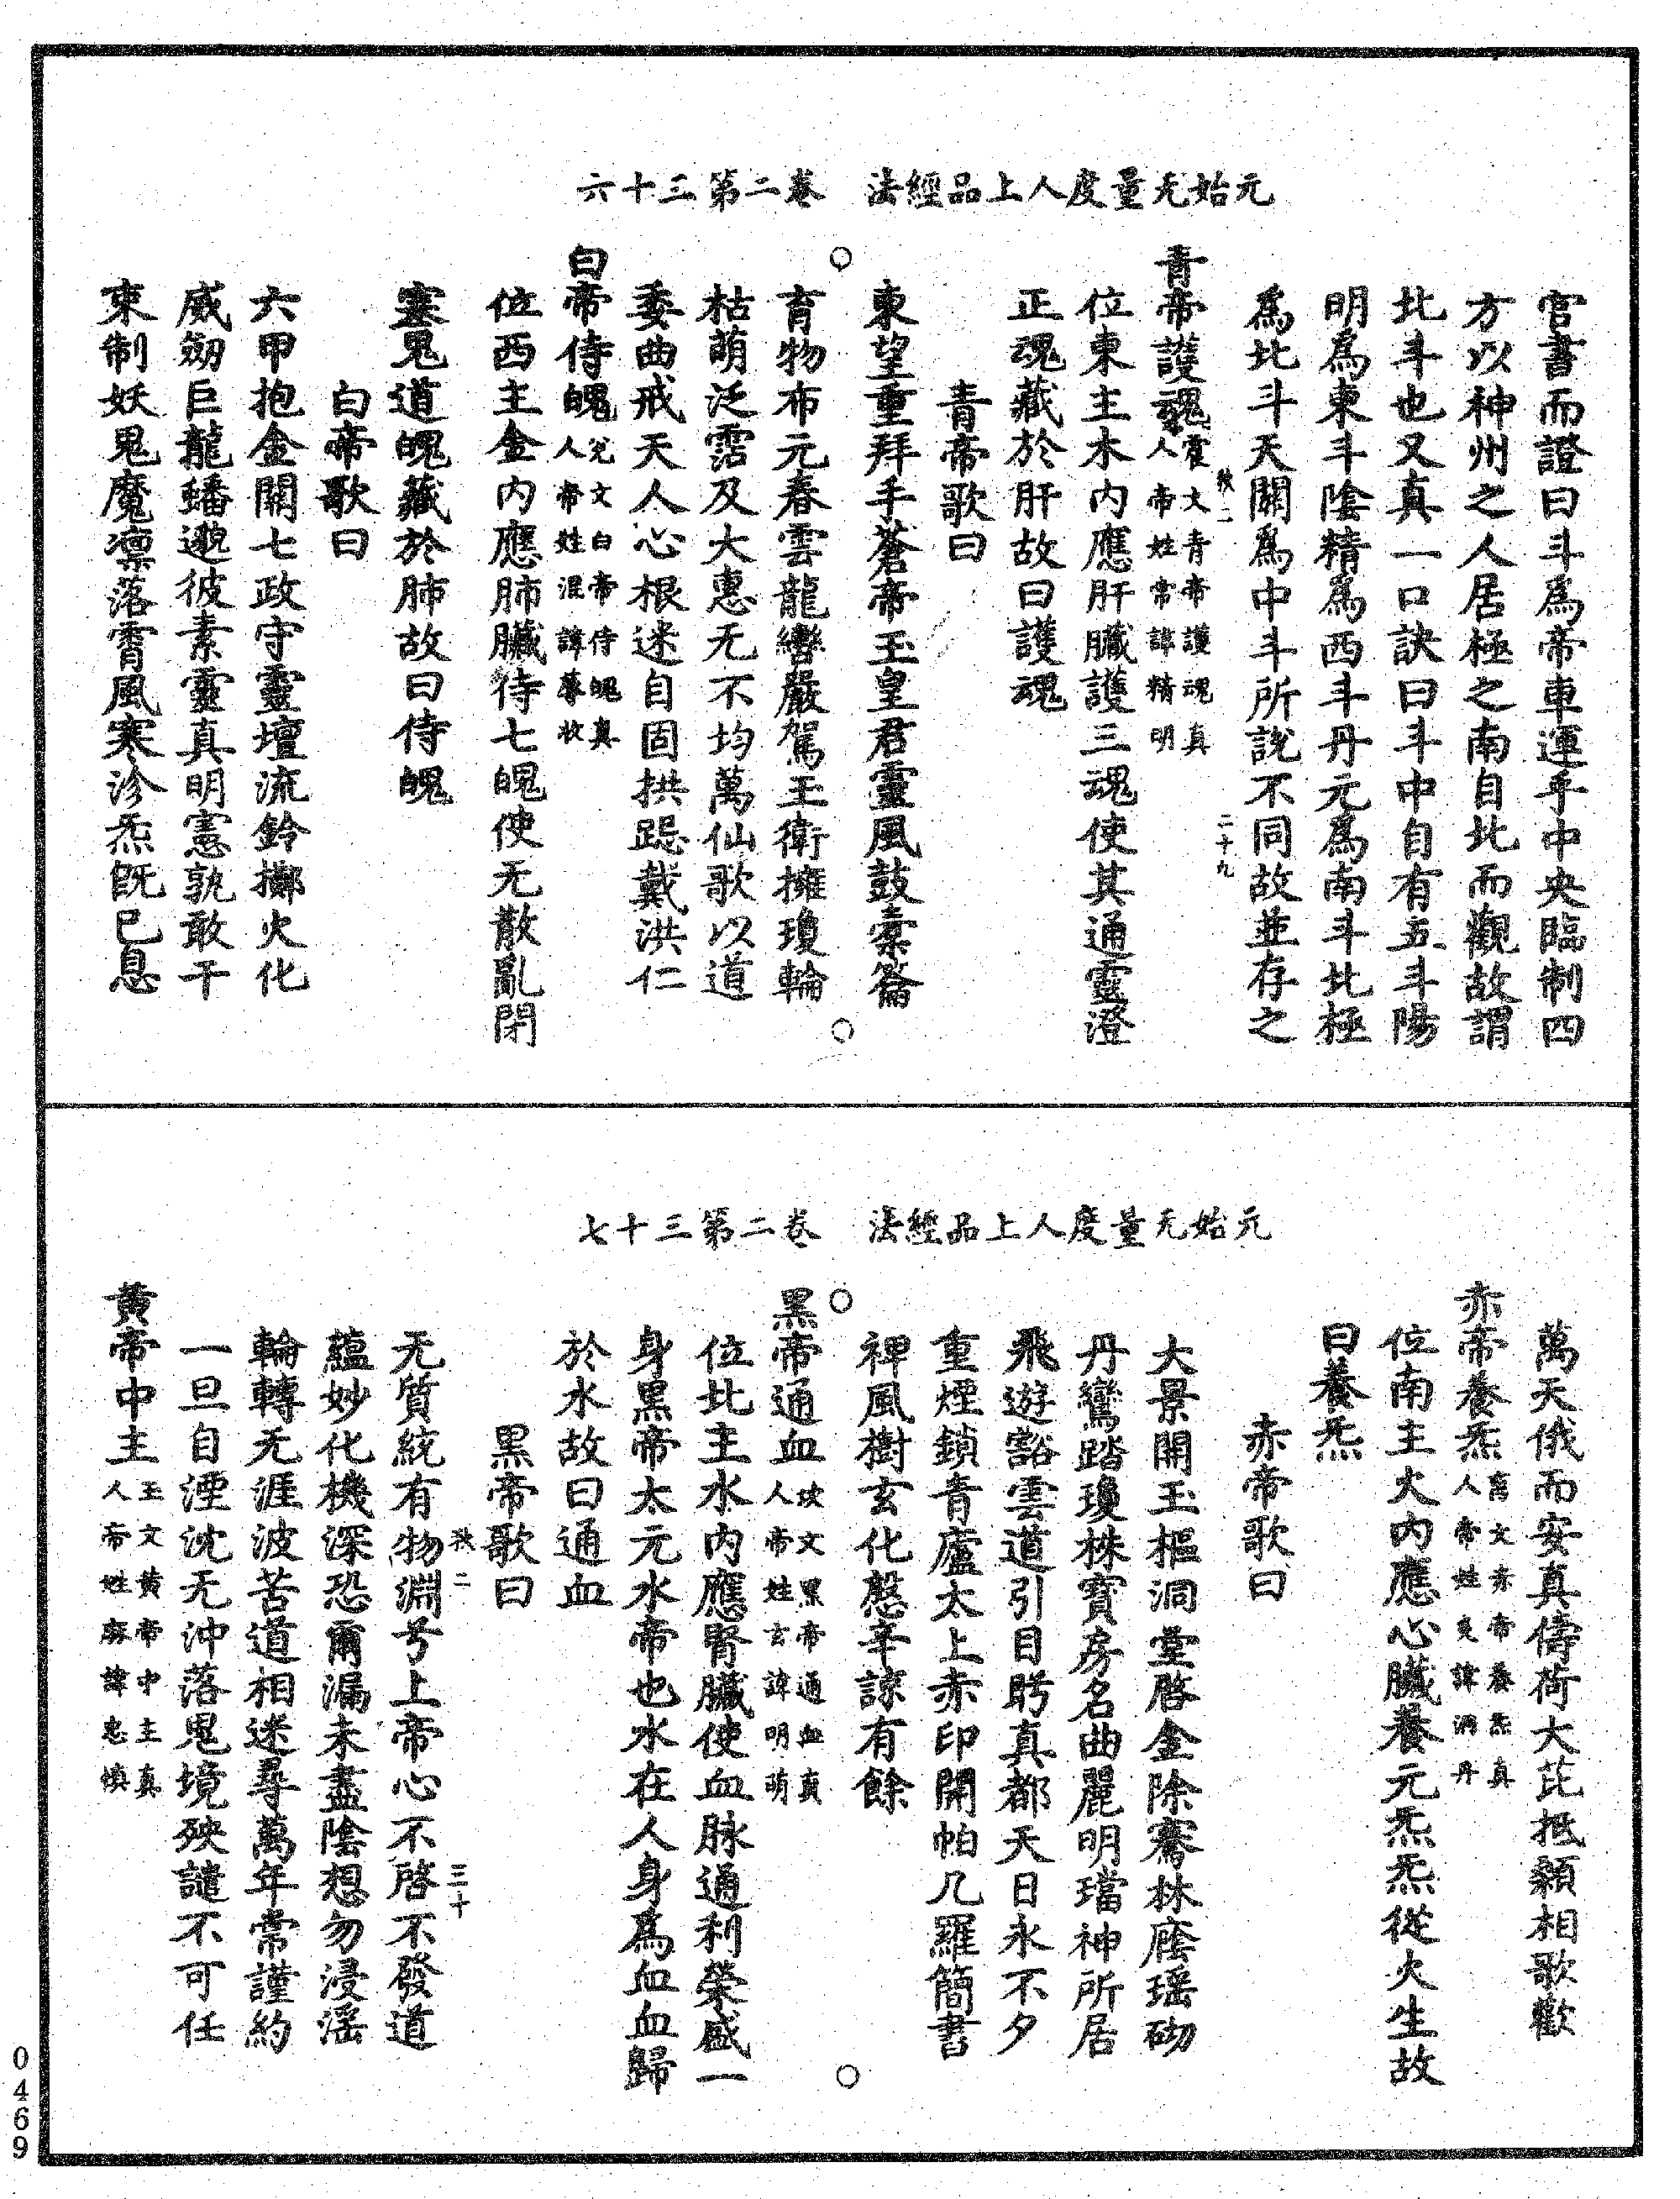 元始无量度人上品經法　卷二第三十六
官書而證曰斗為帝車運乎中央臨制四
方以神州之人居極之南自北而觀故謂
北斗也又真一口訣曰斗中自有五斗陽
明為東斗陰精為西斗丹元為南斗北極
為北斗天關為中斗所說不同故並存之
二　二十九
青帝護魂震文青帝護魂真
人帝姓常諱精明
位東主木內應肝臟護三魂使其通靈澄
正魂藏於肝故曰護魂
青帝歌曰
東望重拜手蒼帝玉皇君靈風鼓橐籥
育物布元春雲龍轡嚴駕玉衛擁瓊輪
枯萌泛霑及大惠无不均萬仙歌以道
委曲戒天人心根迷自固拱跽戴洪仁
白帝侍魄兌文白帝侍魄真
人帝姓混諱蓐收
位西主金內應肺臟侍七魄使无散亂閉
塞鬼道魄藏於肺故曰侍魄
白帝歌曰
六甲抱金關七政守靈壇流鈴擲火化
威劒巨龍蟠邈彼素靈真明憲孰敢干
束制妖鬼魔凛落霄風寒沴炁旣已息
元始无量度人上品經法　卷二第三十七
萬天俄而安真儔荷大芘抵顙相歌歡
赤帝養炁离文赤帝養炁真
人帝姓炎諱洞丹
位南主火內應心臟養元炁炁從火生故
曰養炁
赤帝歌曰
大景開玉樞洞堂啓金除騫林廕瑶砌
丹鸞踏瓊株寶房名曲麗明璫神所居
飛遊豁雲道引目眄真都天日永不夕
重煙鎖青廬太上赤印開帕几羅簡書
裨風樹玄化慇辛諒有餘
黑帝通血坎文黑帝通血真
人帝姓玄諱明萌
位北主水內應腎臟使血脉通利榮盛一
身黑帝太元水帝也水在人身為血血歸
於水故曰通血
黑帝歌曰
二　三十
无質統有物淵兮上帝心不啓不發道
蘊妙化機深恐爾漏未盡陰想勿浸滛
輪轉无涯波苦道相迷尋萬年常謹約
一旦自湮沈无沖落鬼境殃譴不可任
黃帝中主玉文黃帝中主真
人帝姓麻諱忠慎
0469